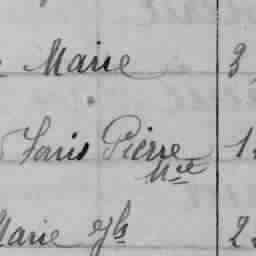 Marie 3
Louis Pierre 1
Nce
Marie 2